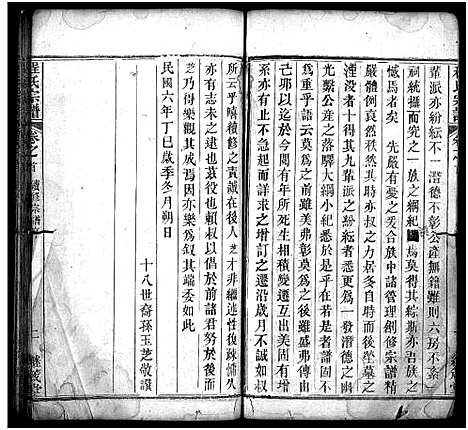 輩派亦紛紜不一潛德不彰公產無籍雖則六房不紊
祠統攝而究之一族之綱紀焉莫得其綜斯亦吾族之
憾焉者矣　先嚴有憂之爰合族中諸管理創修宗譜精
嚴體例哀然秩然其時亦叔之力居多而後塋墓之
湮没者十得其九輩派之紛紜者悉更為一發潛德之幽
光繫公產之落驛大綱小紀悉於是乎在若是者譜固不
為重乎語云莫為之前雖美弗彰莫為之後雖盛弗傳
己卯以迄於今閱有年所死生相積變遷互出而吾之世
系亦有近於此且夫前之修增訂之遷沿歲月不試大懼
所云乎嘻續修之責誠在後人芝才非繼述性復疎慵久
亦有志未之逮也幸有賴叔以倡於前諸君努於後
芝乃得樂觀其成因亦樂為叙其端委如此
民國六年丁巳歲季冬月朔日
十八世裔孫玉芝敬譔
程氏宗譜
卷之首
續修宗譜
一
繼茂堂